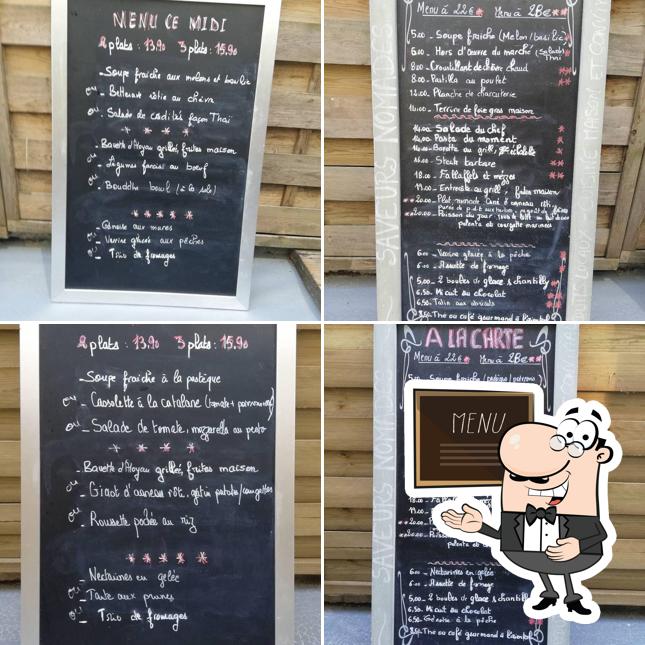 MENU CE MIDI
2 plats : 13.90 3 plats : 15.90
- Soupe fraiche aux melons et basilic
ou - Betterave rôtie au chèvre
ou - Salade de façon Thai
- Bavette d'Aloyau grillée, frites maison
ou - Légumes farcis au boeuf
ou - Bouddha bowl
- Génoise aux mures
ou - Verrine glacée aux pêches
ou - Trio de fromages
Menu à 22€ Menu à 28€
5.00 - Soupe fraiche (Melon/basilic)
6.00 - Hors d'œuvre du marché (Salade Thai)
8.00 - Croustillant de chèvre chaud
8.00 - Pastilla au poulet
12.00 - Planche de charcuterie
14.00 - Terrine de foie gras maison
14.00 - Salade du chef
14.00 - Pasta du moment
14.00 - Bavette au grill,
16.00 - Steak tartare
18.00 - Fallaffels et mézes
19.00 - Entrecôte au grill, frites maison
20.00 - Plat nomade
20.00 - Poisson du jour
polenta et courgette marinées
6.00 - Verrine glacée à la pêche
6.00 - Assiette de fromage
5.00 - 2 boules de glace & chantilly
6.50 - Mi cuit au chocolat
6.50 - Tatin aux abricots
8.50 - Thé ou café gourmand
SAVEURS NOMADES
MAISON ET
2 plats : 13.90 3 plats : 15.90
- Soupe fraiche à la pastèque
ou - Cassolette à la catalane (tomate + poivrons)
ou - Salade de tomate, mozzarella au pesto
- Bavette d'Aloyau grillée, frites maison
ou - Gigot d'agneau rôti, gratin patate/courgettes
ou - Roussette pochée au riz
- Nectarines en gelée
ou - Tarte aux prunes
ou - Trio de fromages
A LA CARTE
Menu à 22€ Menu à 28€
5.00 - Soupe fraiche
MENU
18.00 - Fal
19.00 -
20.00 - P
20.00 - Poiss
polenta et
6.00 - Nectarines en gelée
6.00 - Assiette de fromage
5.00 - 2 boules de glace & chantilly
6.50 - Mi cuit au chocolat
6.50 - Génoise à la pêche
Thé ou café gourmand
SAVEURS NOMADES